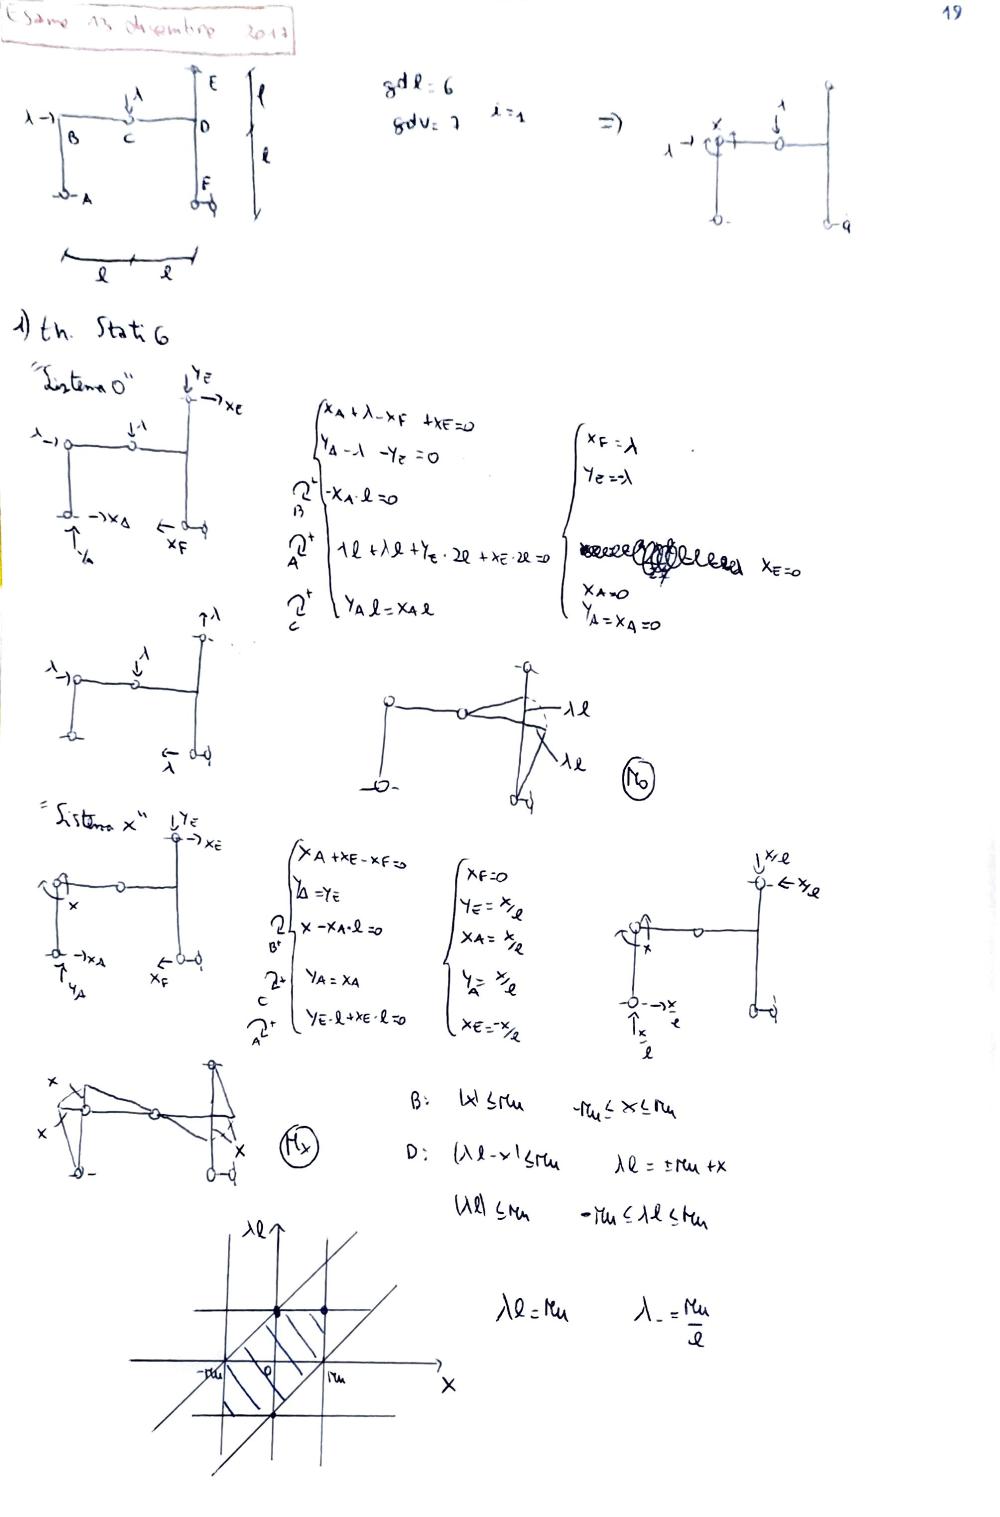 Esame 13 dicembre 2017
19
λ
E
l
λ→
B
C
D
l
A
F
l
l
gdl = 6
gdv = 7
i=1
⇒
X
λ
λ
1) th. Statico
"Sistema 0"
YE
XE
λ
λ
XA
YA
XF
XA + λ - XF + XE = 0
YA - λ - YE = 0
B -XA·l = 0
A λl + λl + YE·2l + XE·2l = 0
C YA l = XA l
XF = λ
YE = -λ
XE = 0
XA = 0
YA = XA = 0
λ
λ
λ
λ
λl
λl
M0
"Sistema X"
YE
XE
X
XA
YA
XF
XA + XE - XF = 0
YA = YE
B X - XA·l = 0
C YA = XA
A YE·l + XE·l = 0
XF = 0
YE = X/l
XA = X/l
YA = X/l
XE = -X/l
X/l
X/l
X
X/l
X/l
X
X
X
MX
B: |X| ≤ Mu -Mu ≤ X ≤ Mu
D: |λl - X| ≤ Mu λl = ±Mu + X
|λl| ≤ Mu -Mu ≤ λl ≤ Mu
λl
-Mu
0
Mu
X
λl = Mu
λ_ = Mu/l